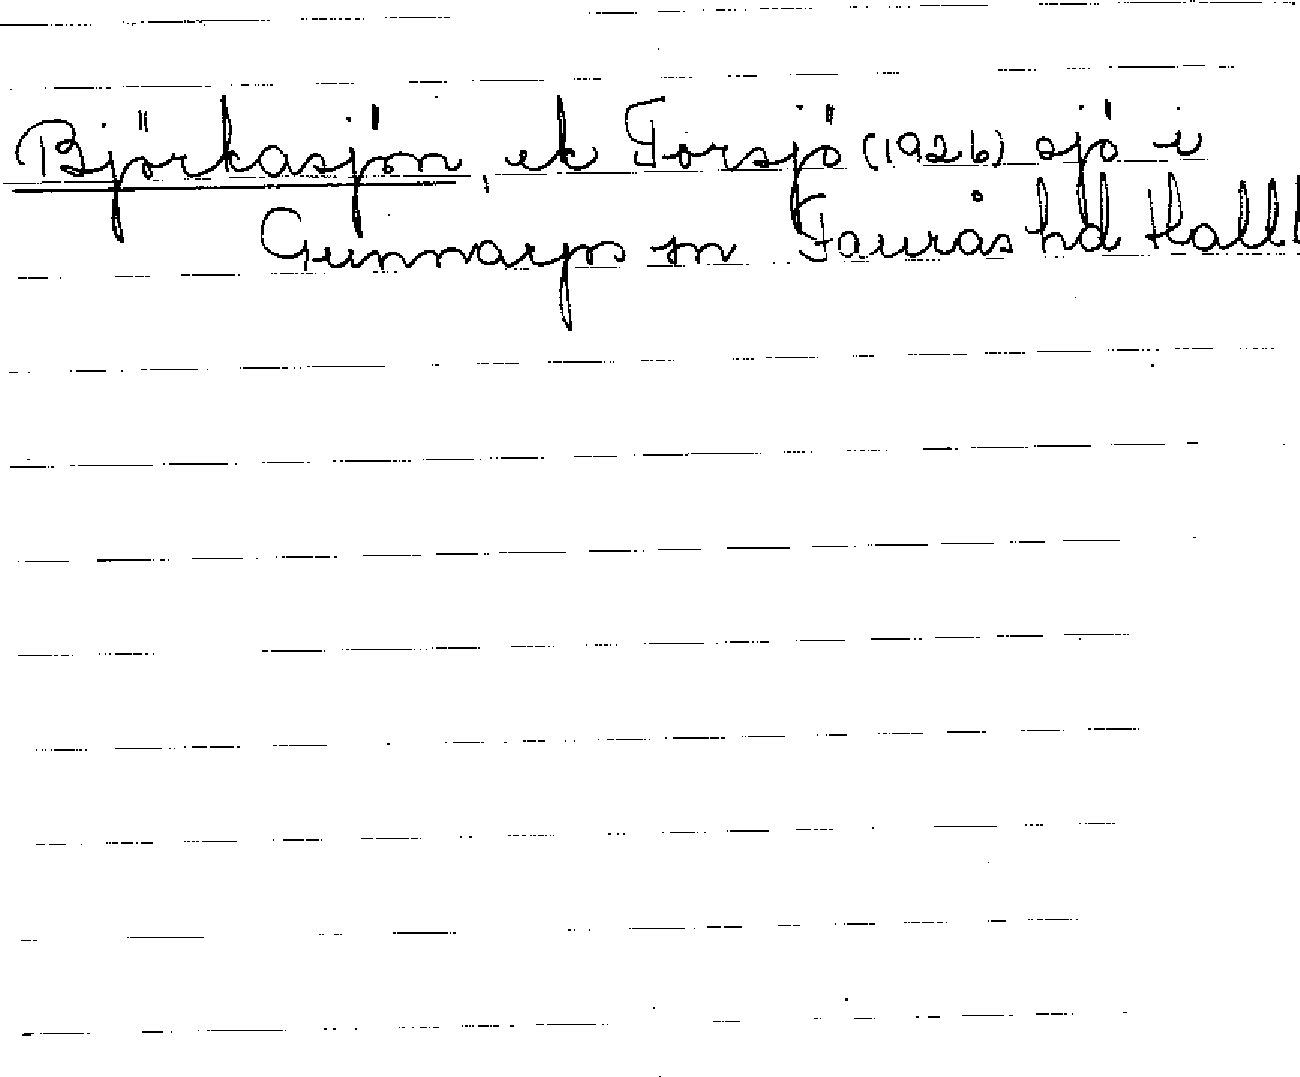 Björkasjön, ek Torsjö (1926) sjö i
Gunnarps sn Faurås hd Hall